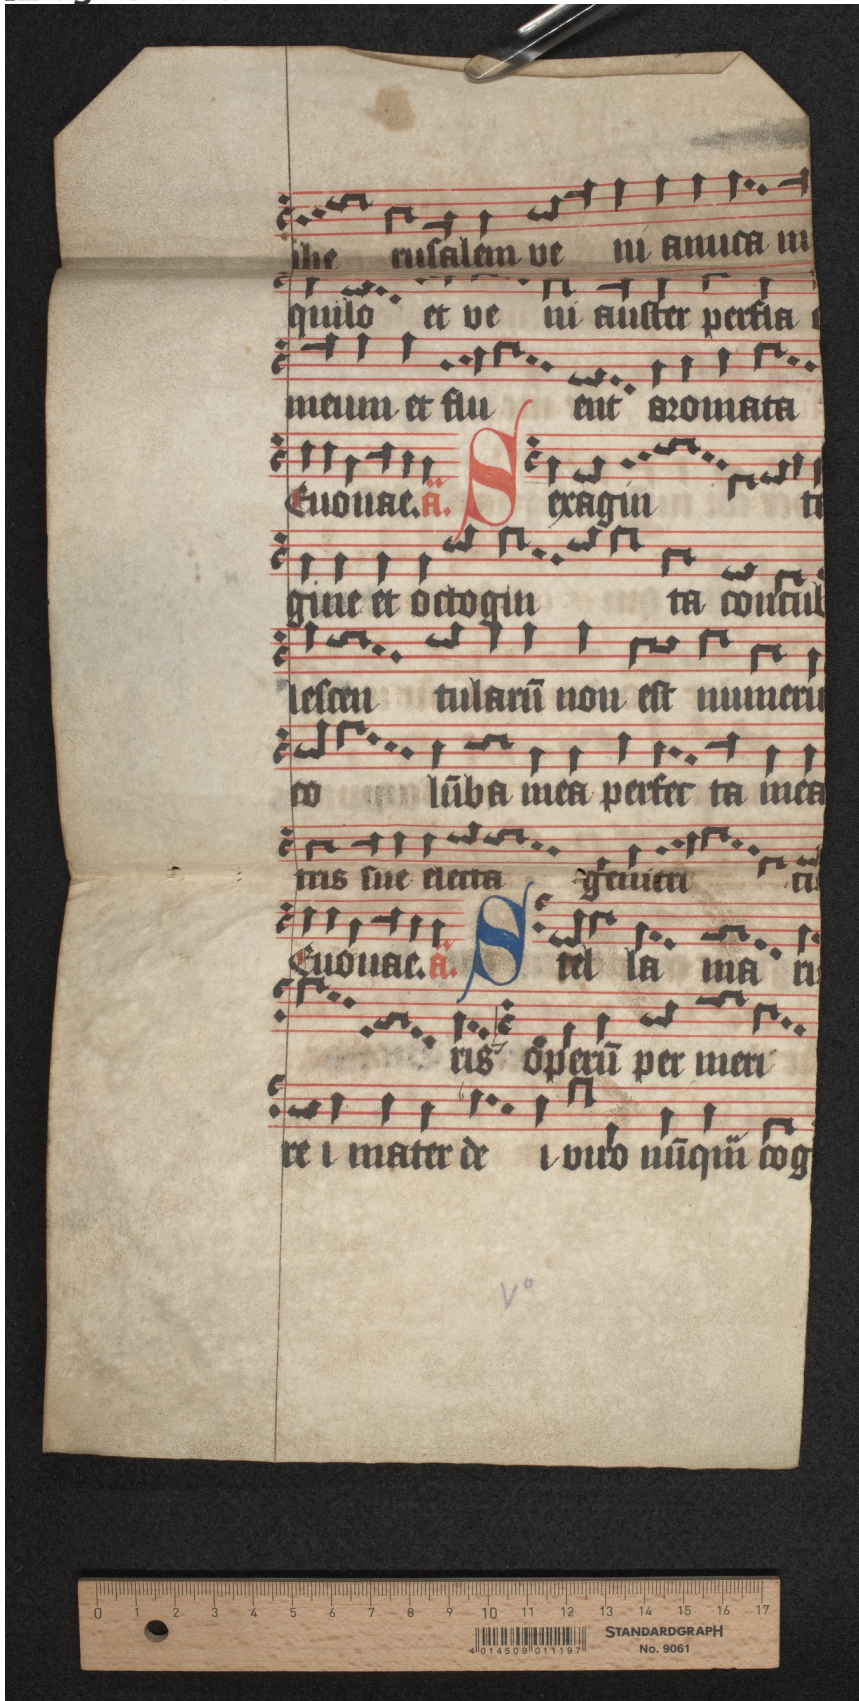 ihe rusalem ve ni amica m
quilo et ve ni auster perfla
meum et flu ent aromata
Euouae. a. Sexagin ta
gine et octogin ta concub
lescen tularū non est numeru
co lūba mea perfec ta mea
tris sue electa genitri ci
Euouae. a. Stel la ma ris
ris operū per meri
re i mater de i viro nūqm̄ cog
Vo
0 1 2 3 4 5 6 7 8 9 10 11 12 13 14 15 16 17
STANDARDGRAPH
No. 9061
4 014509 011197